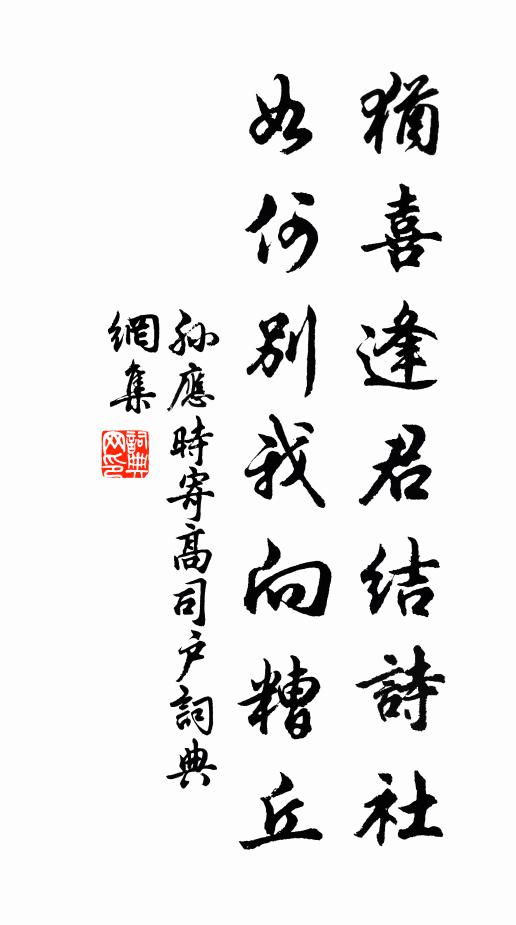 猶喜逢君結詩社
如何別我向糟丘
孫應時寄高司户詞典
網集
詞典網印